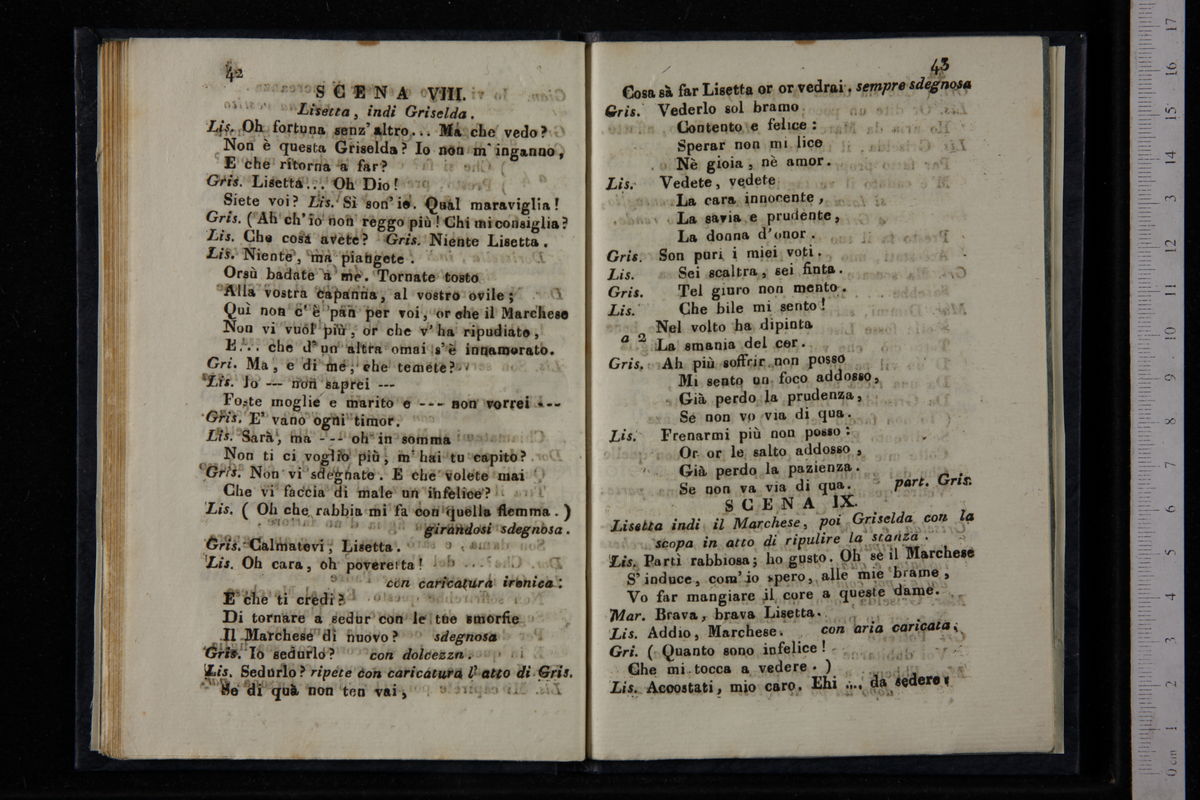 42
SCENA VIII.
Lisetta, indi Griselda.
Lis. Oh fortuna senz' altro... Ma che vedo?
Non è questa Griselda? Io non m'inganno,
E che ritorna a far?
Gris. Lisetta... Oh Dio!
Siete voi? Lis. Sì son' io. Qual maraviglia!
Gris. (Ah ch'io non reggo più! Chi mi consiglia?
Lis. Che cosa avete? Gris. Niente Lisetta.
Lis. Niente, ma piangete.
Orsù badate a me. Tornate tosto
Alla vostra capanna, al vostro ovile;
Quì non c'è pan per voi, or che il Marchese
Non vi vuol più, or che v' ha ripudiato,
E... che d' un altra omai s' è innamorato.
Gri. Ma, e di me, che temete?
Lis. Io --- non saprei ---
Foste moglie e marito e --- non vorrei ---
Gris. E' vano ogni timor.
Lis. Sarà, ma --- oh in somma
Non ti ci voglio più, m' hai tu capito?
Gris. Non vi sdegnate. E che volete mai
Che vi faccia di male un infelice?
Lis. ( Oh che rabbia mi fa con quella flemma. )
girandosi sdegnosa.
Gris. Calmatevi, Lisetta.
Lis. Oh cara, oh poveretta!
con caricatura ironica:
E che ti credi?
Di tornare a sedur con le tue smorfie
Il Marchese di nuovo? sdegnosa
Gris. Io sedurlo? con dolcezzn.
Lis. Sedurlo? ripete con caricatura l' atto di Gris.
Se di quà non ten vai,
43
Cosa sà far Lisetta or or vedrai. sempre sdegnosa
Gris. Vederlo sol bramo
Contento e felice:
Sperar non mi lice
Nè gioia, nè amor.
Lis. Vedete, vedete
La cara innocente,
La savia e prudente,
La donna d'onor.
Gris. Son puri i miei voti.
Lis. Sei scaltra, sei finta.
Gris. Tel giuro non mento.
Lis. Che bile mi sento!
Nel volto ha dipinta
a 2 La smania del cor.
Gris. Ah più soffrir non posso
Mi sento un foco addosso,
Già perdo la prudenza,
Se non vo via di qua.
Lis. Frenarmi più non posso:
Or or le salto addosso,
Già perdo la pazienza.
Se non va via di qua. part. Gris.
SCENA IX.
Lisetta indi il Marchese, poi Griselda con la
scopa in atto di ripulire la stanza.
Lis. Partì rabbiosa; ho gusto. Oh se il Marchese
S' induce, com' io spero, alle mie brame,
Vo far mangiare il core a queste dame.
Mar. Brava, brava Lisetta.
Lis. Addio, Marchese. con aria caricata.
Gri. ( Quanto sono infelice!
Che mi tocca a vedere. )
Lis. Accostati, mio caro. Ehi ... da sedere: